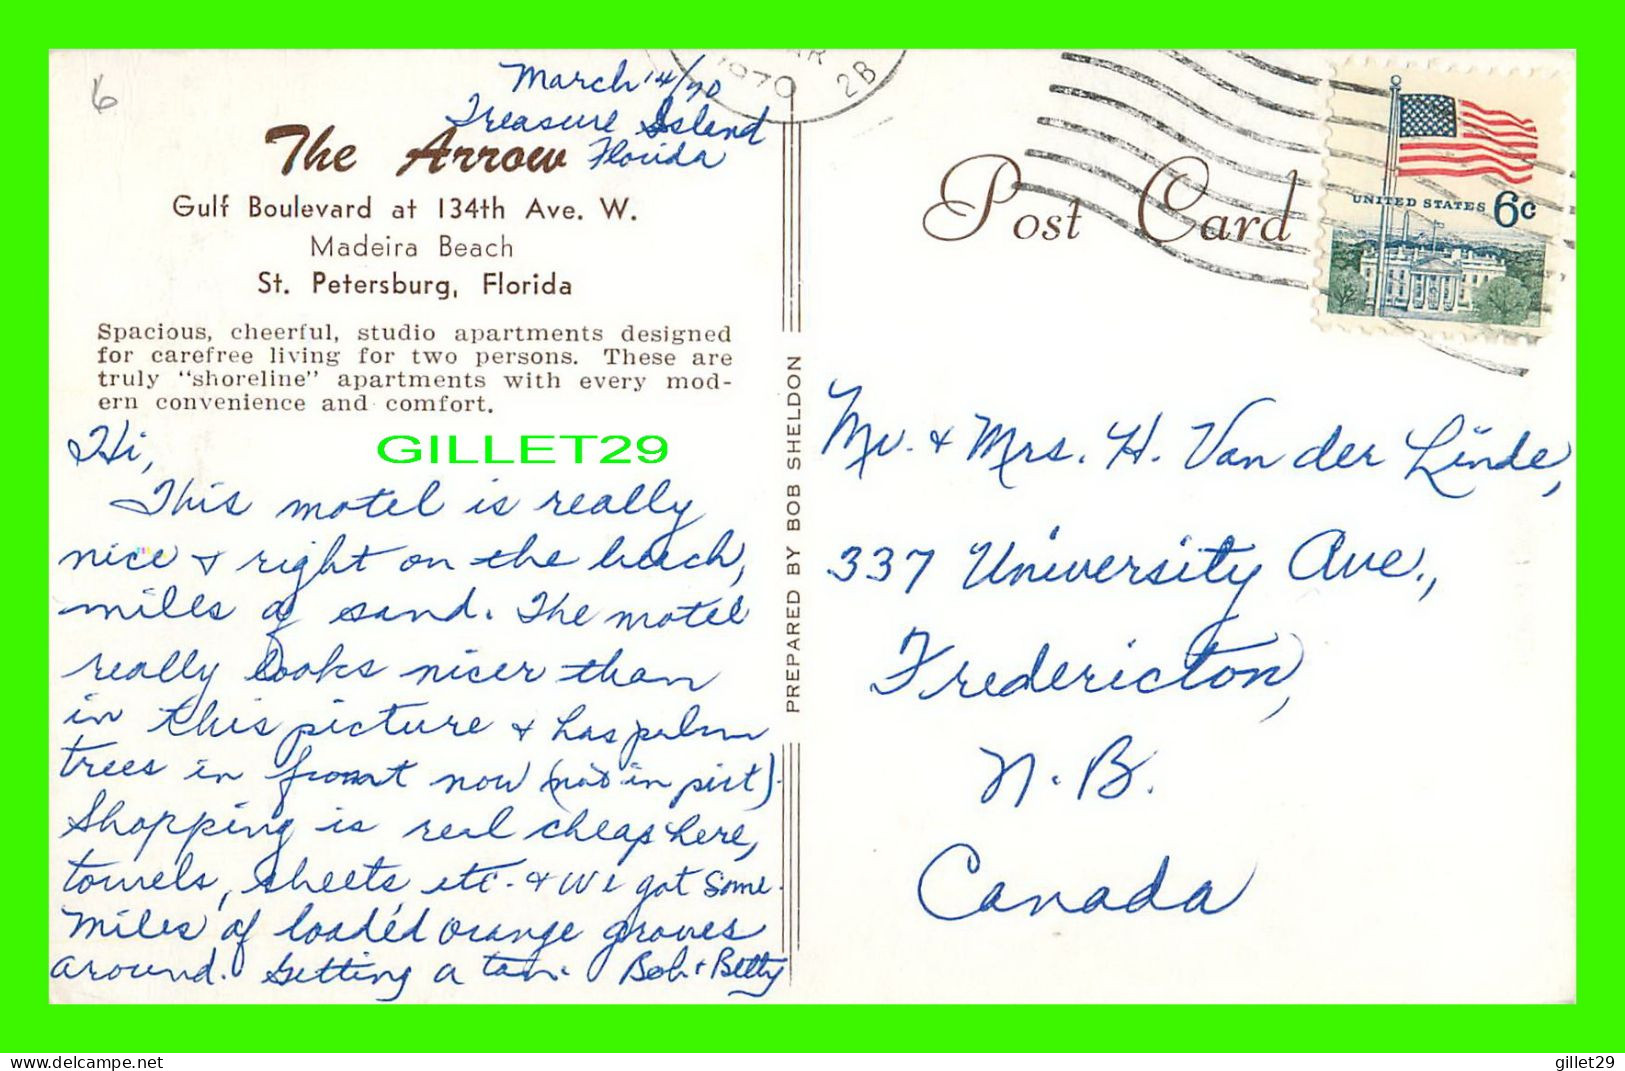 6
March 14/70
Treasure Island
Florida
The Arrow
Gulf Boulevard at 134th Ave. W.
Madeira Beach
St. Petersburg, Florida
Spacious, cheerful, studio apartments designed
for carefree living for two persons. These are
truly "shoreline" apartments with every mod-
ern convenience and comfort.
Hi,
This motel is really
nice + right on the beach,
miles of sand. The motel
really looks nicer than
in this picture + has palm
trees in front now (not in pict).
Shopping is real cheap here,
towels, sheets, etc. + we got some.
Miles of loaded orange groves
around. Getting a tan. Bob + Betty
GILLET29
PREPARED BY BOB SHELDON
AR
1970
2B
Post Card
UNITED STATES 6c
Mr. + Mrs. H. Van der Linde,
337 University Ave.,
Fredericton,
N.B.
Canada
delcampe.net
gillet29